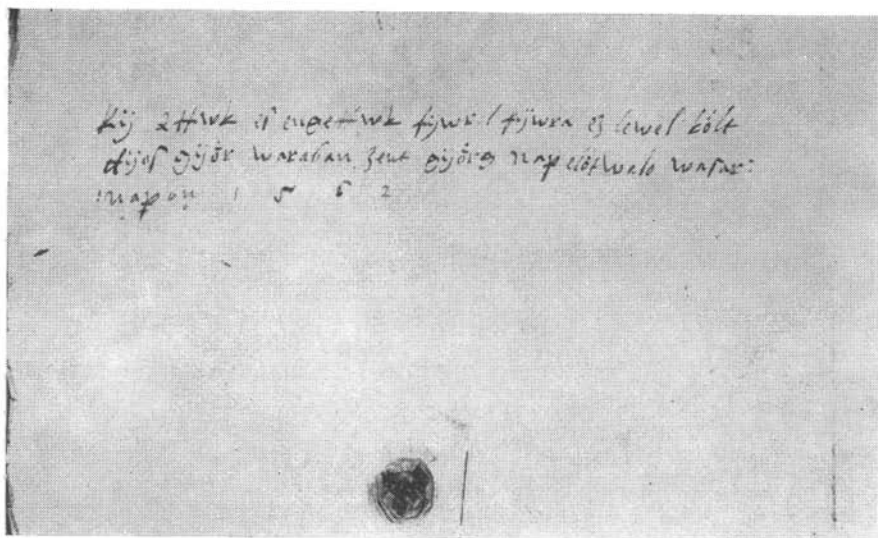 kij attwk es engettwk fijwrl fijwra ez lewel költ
dijos gijör waraban zent gijörg nap elötwalo wasar:
:napon 1 5 6 2